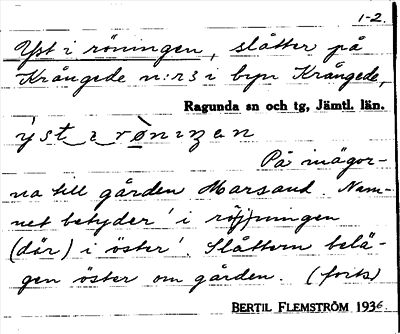 1-2.
Yst i röningen, slåtter på
Krångede n:r 3 i byn Krångede,
Ragunda sn och tg, Jämtl. län.
ỳst i rø̀nıŋen
På mägor-
na till gården Marsand. Nam-
net betyder 'i röj)ningen
(där) i öster'. Slåttern belä-
gen öster om gården. (forts)
BERTIL FLEMSTRÖM 1936.